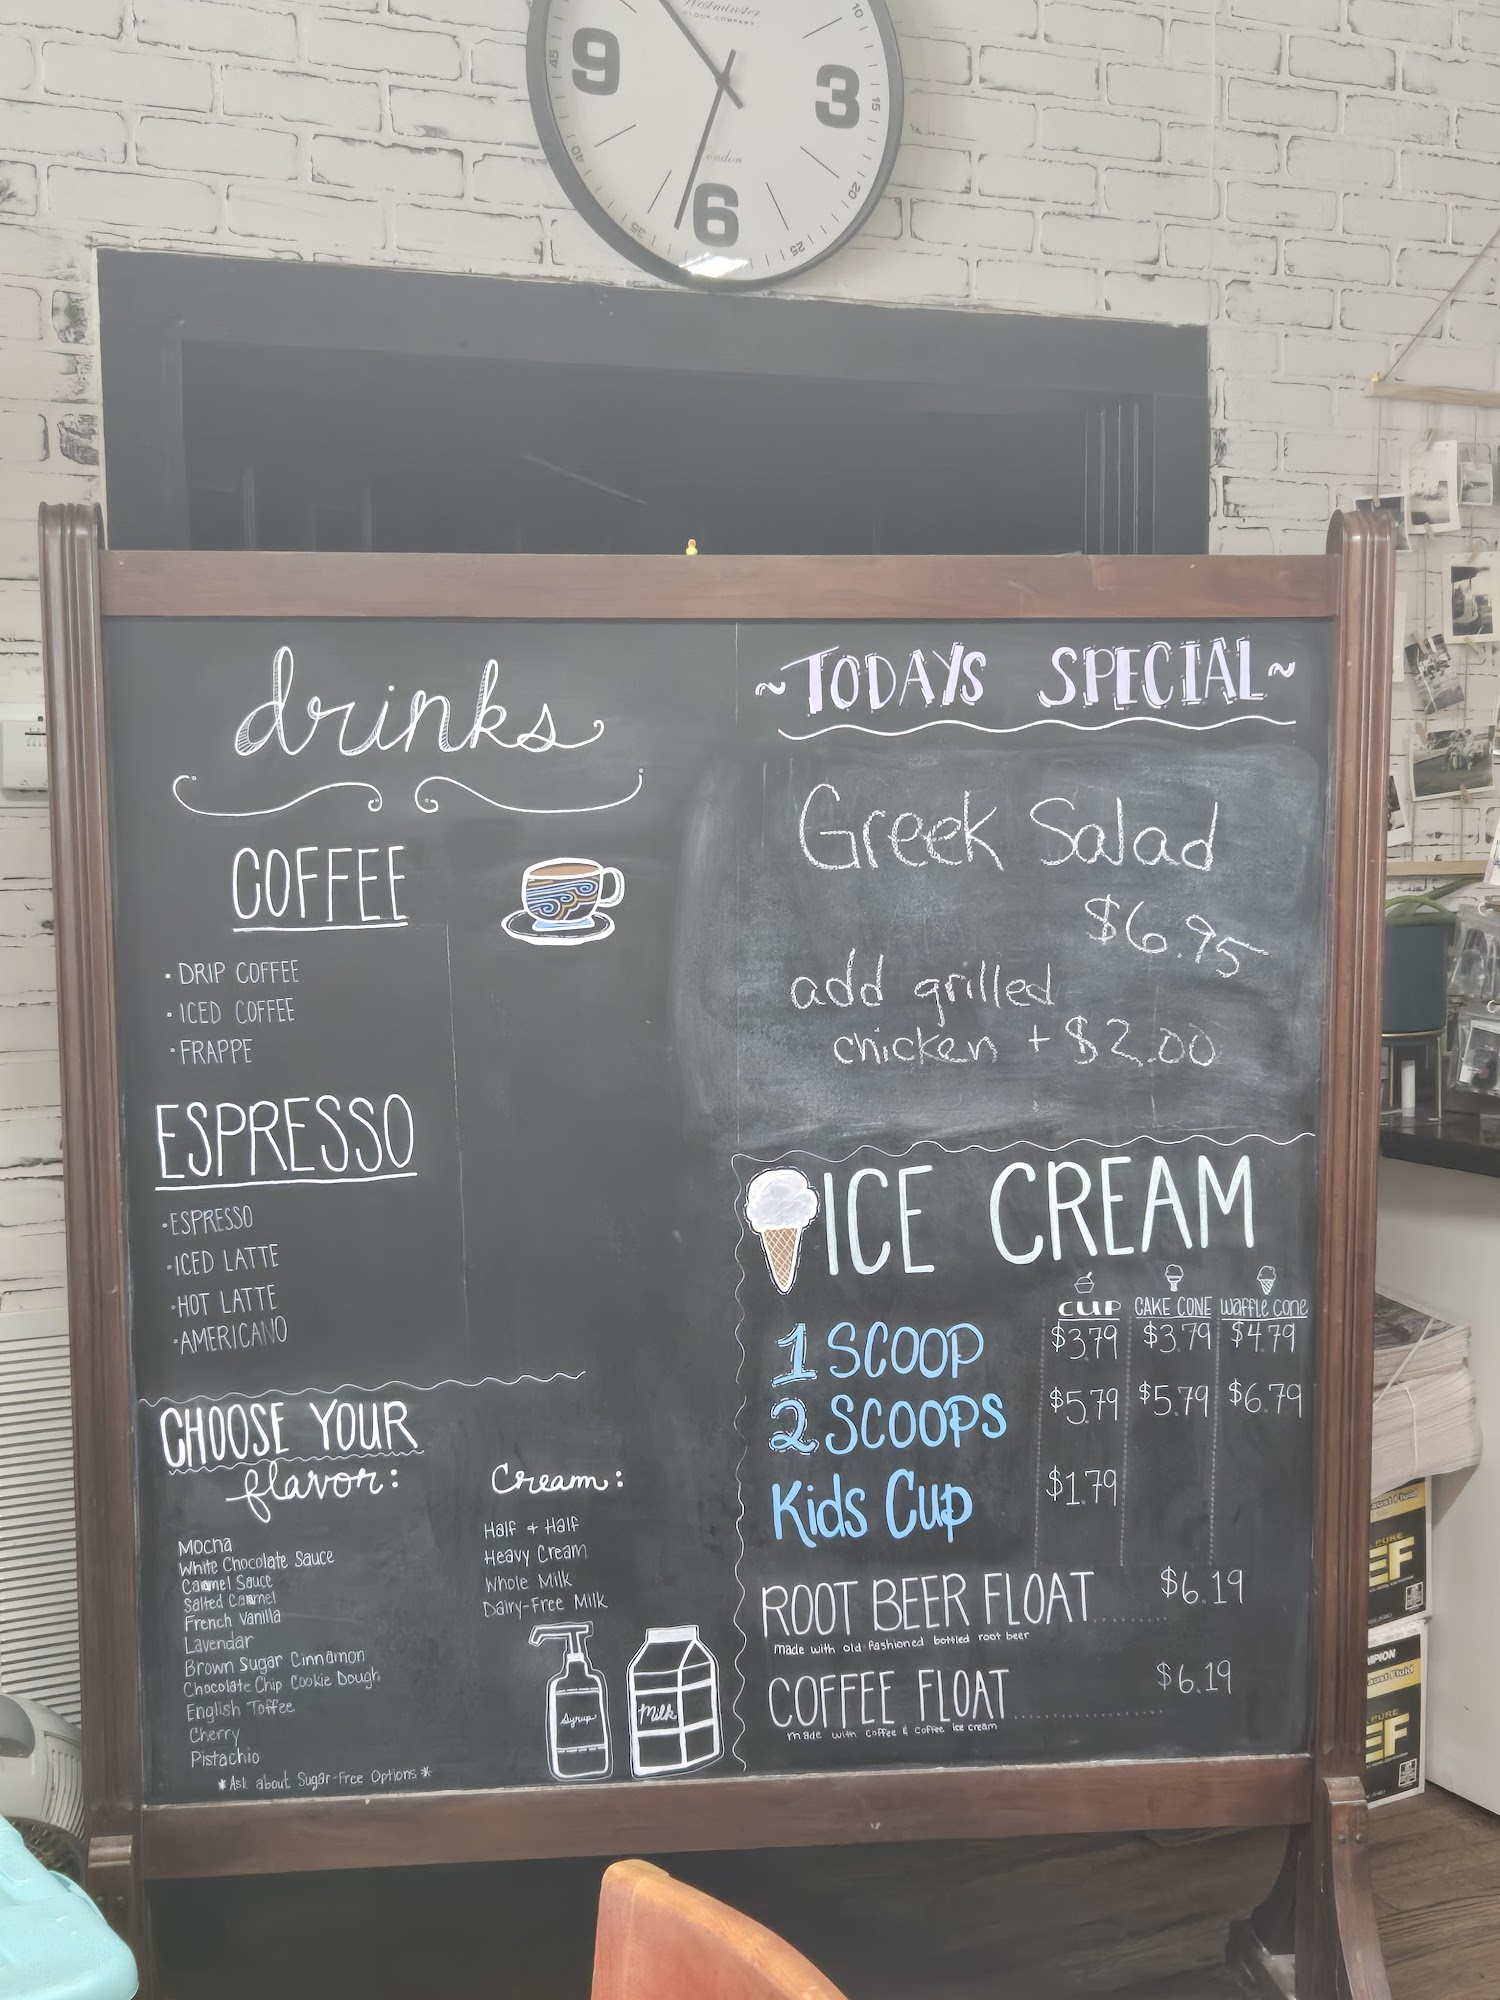 Westminster
CLOCK COMPANY
10
45
9
3
15
40
London
20
6
35
25
drinks
COFFEE
· DRIP COFFEE
· ICED COFFEE
· FRAPPE
ESPRESSO
· ESPRESSO
· ICED LATTE
· HOT LATTE
· AMERICANO
CHOOSE YOUR
flavor:
Mocha
White Chocolate Sauce
Caramel Sauce
Salted Caramel
French Vanilla
Lavendar
Brown Sugar Cinnamon
Chocolate Chip Cookie Dough
English Toffee
Cherry
Pistachio
*Ask about Sugar-Free Options*
Cream:
Half + Half
Heavy Cream
Whole Milk
Dairy-Free Milk
Syrup
Milk
~TODAYS SPECIAL~
Greek Salad
$6.95
add grilled
chicken + $2.00
ICE CREAM
CUP CAKE CONE waffle cone
1 SCOOP $3.79 $3.79 $4.79
2 SCOOPS $5.79 $5.79 $6.79
Kids Cup $1.79
ROOT BEER FLOAT........ $6.19
made with old fashioned bottled root beer
COFFEE FLOAT................ $6.19
made with coffee & coffee ice cream
PURE
EF
PION
aust Fluid
PURE
EF